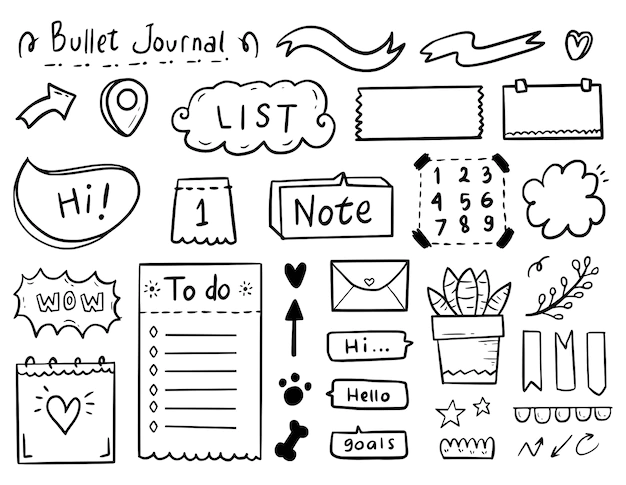 Bullet Journal
LIST
Hi!
1
Note
1 2 3
4 5 6
7 8 9
WOW
To do
Hi...
Hello
goals